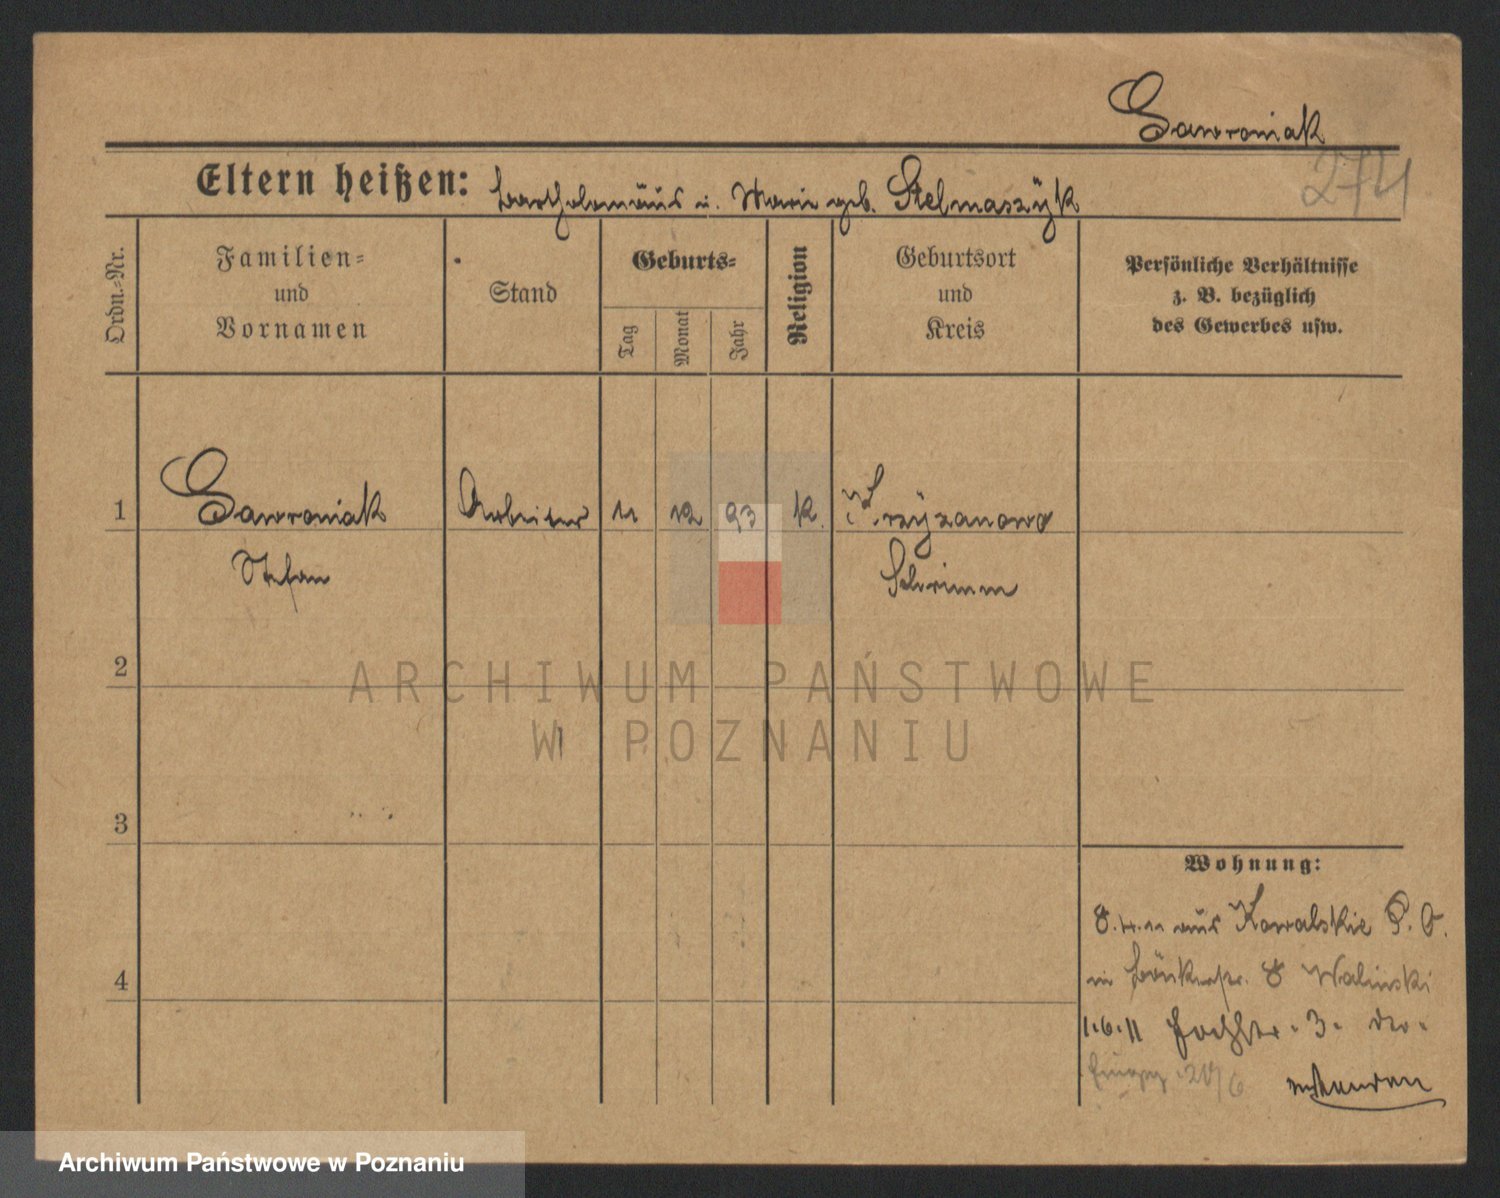 Gawroniak
274
Eltern heißen: Bartholomäus u. Marie geb. Stelmaszÿk
Ordn.-Nr.
Familien- und Vornamen
Stand
Geburts-
Tag
Monat
Jahr
Religion
Geburtsort und Kreis
Persönliche Verhältnisse
z. B. bezüglich
des Gewerbes usw.
1 Gawroniak Arbeiter 11 12 93 K. Krzÿzanowo
Stefan Schrimm
2
ARCHIWUM PAŃSTWOWE
W POZNANIU
3
Wohnung:
8.4.11 aus Kowalskie P. O.
in Bäckerstr. 8 Walinski
4
1.6.11 3.
Archiwum Państwowe w Poznaniu